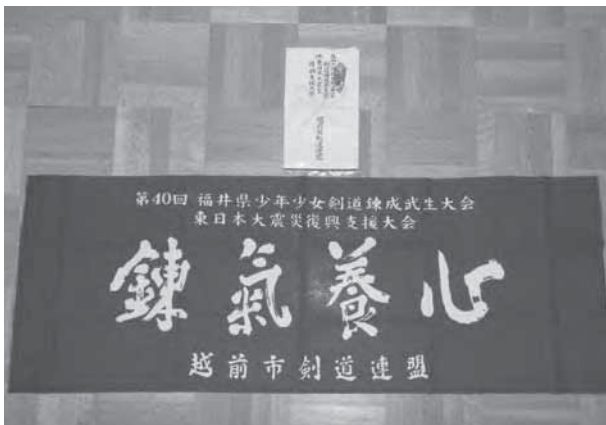 第40回 福井県少年少女剣道錬成武生大会
東日本大震災復興支援大会
錬氣養心
越前市剣道連盟